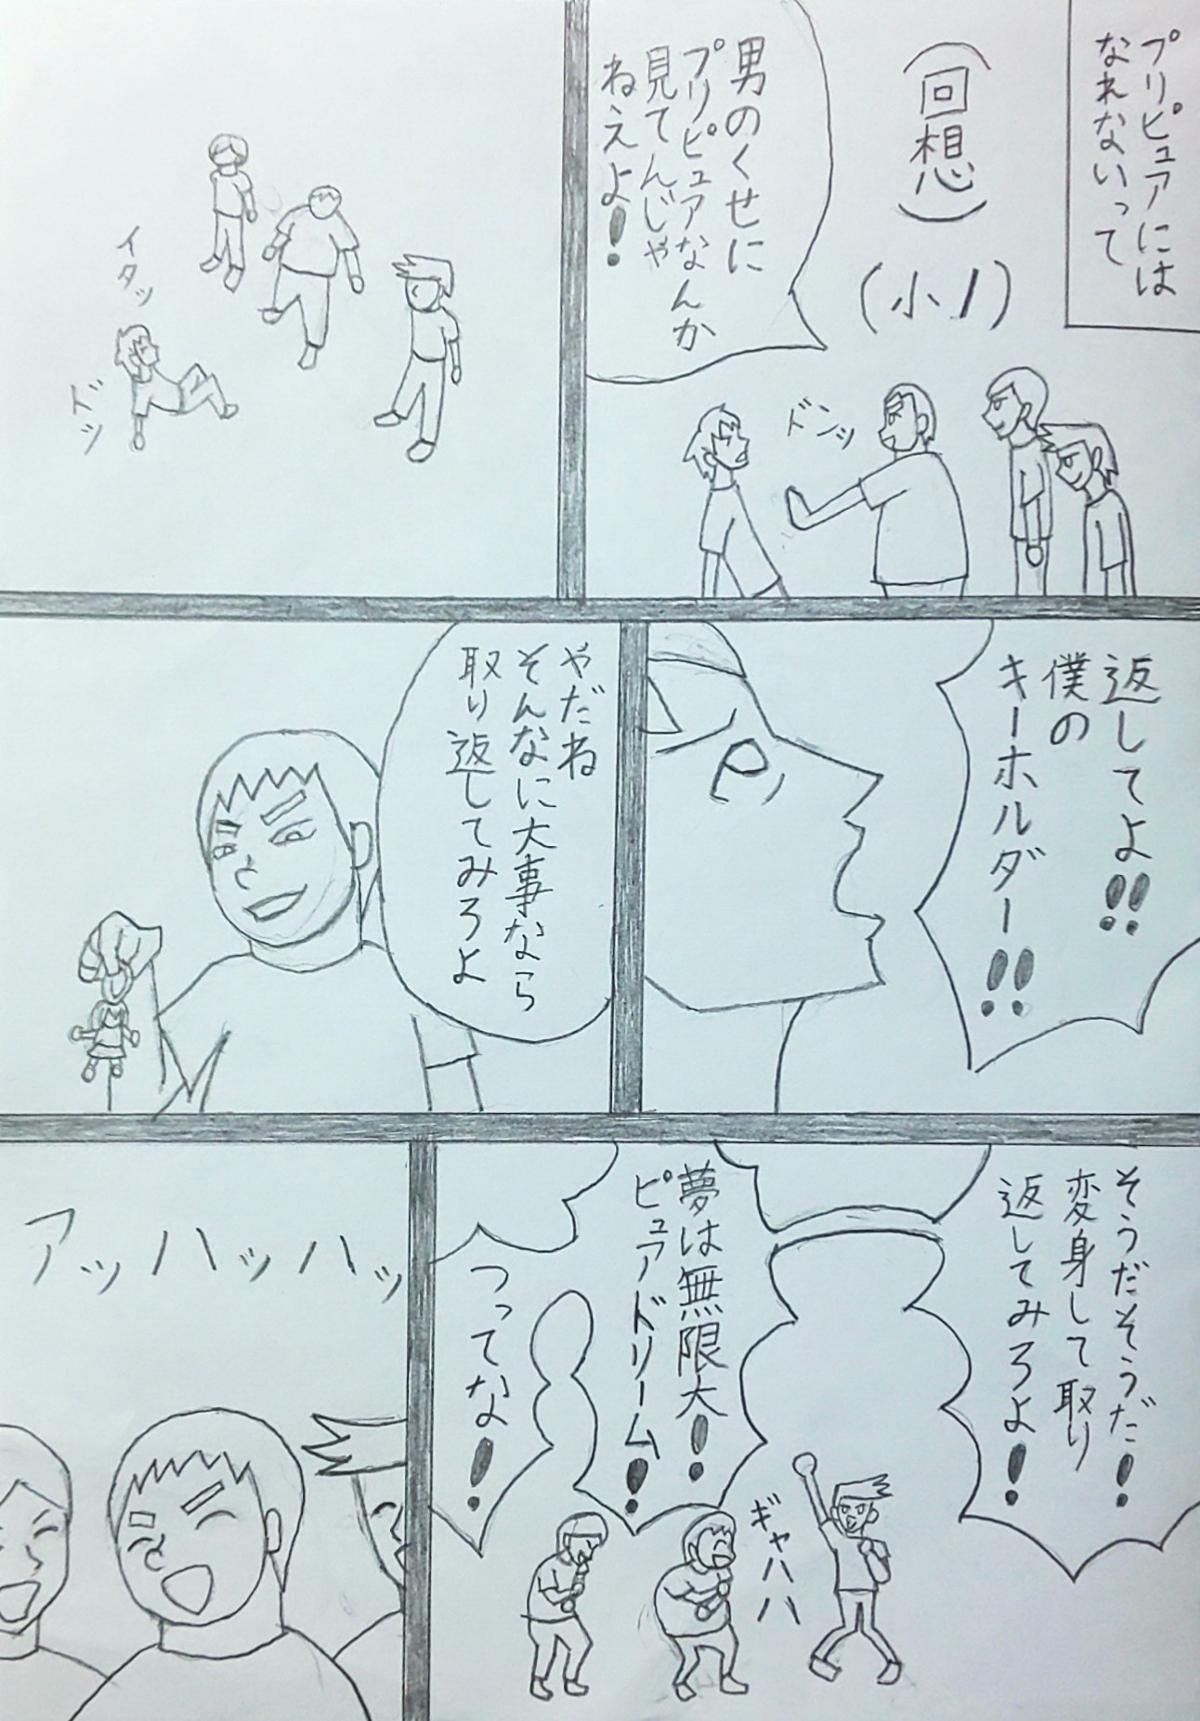 プリピュアには
なれないって
(回想)
(小1)
男のくせに
プリピュアなんか
見てんじゃ
ねえよ!
ドンッ
イタッ
ドッ
返してよ!!
僕の
キーホルダー!!
やだね
そんなに大事なら
取り返してみろよ
そうだそうだ!
変身して取り
返してみろよ!
夢は無限大!
ピュアドリーム!
つってな!
ギャハハ
アッハッハッ